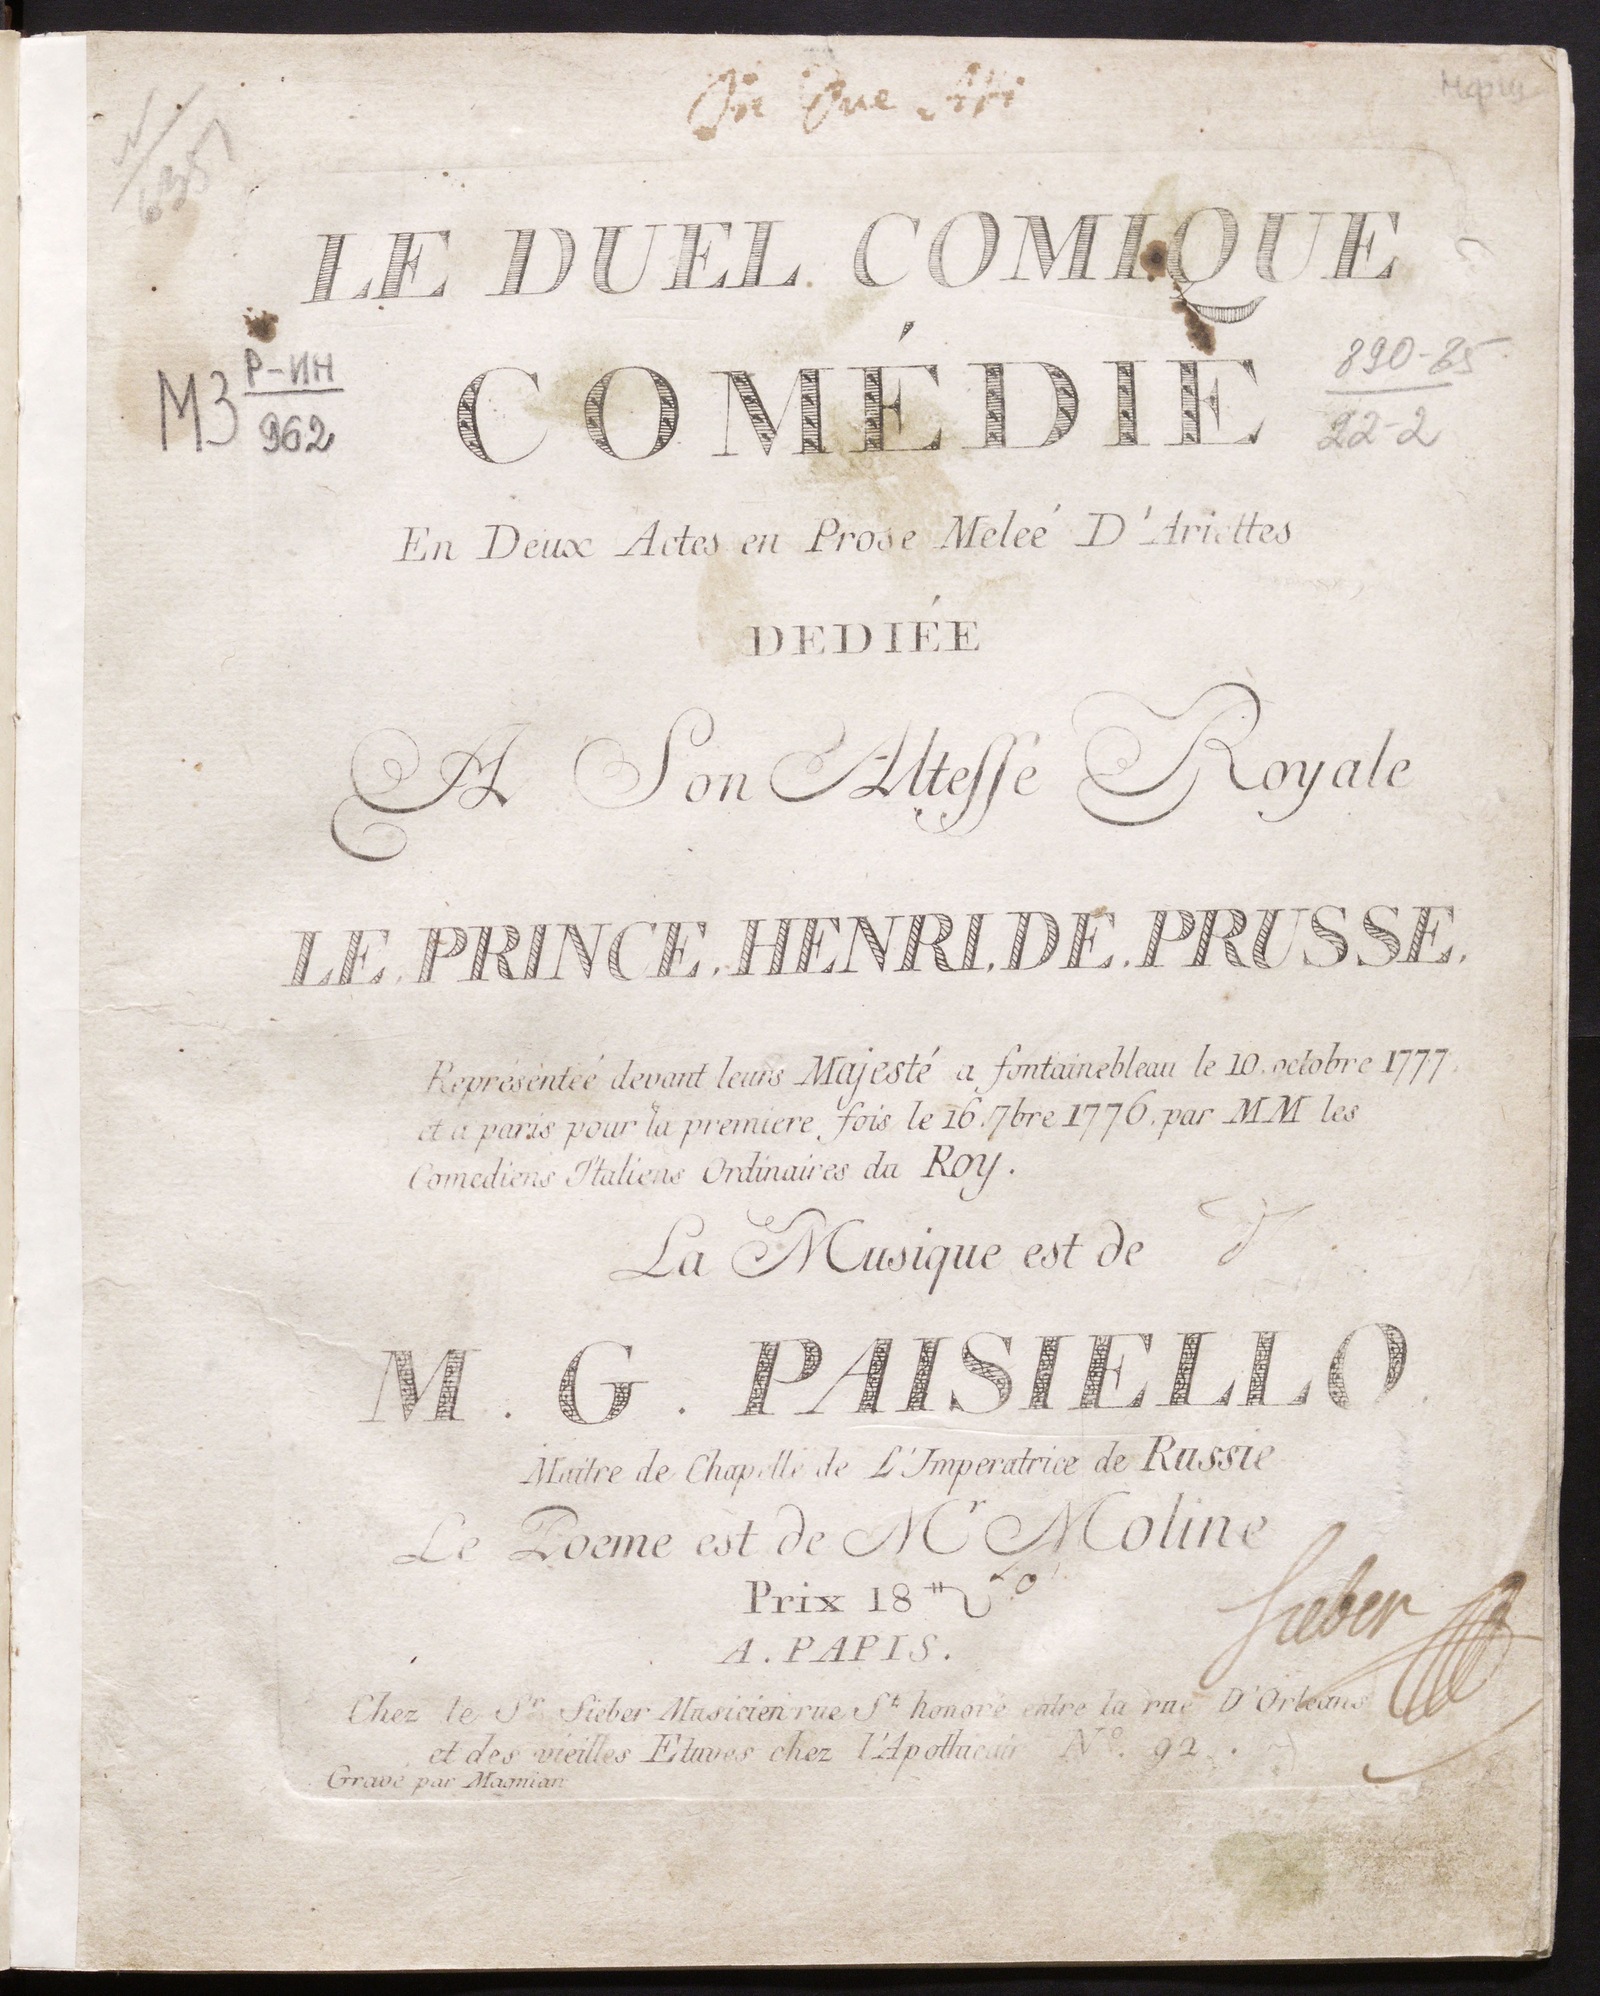 In Due Atti
N/6351
LE DUEL COMIQUE
COMÉDIE
МЗ Р-ИН
962
890-85
22-2
En Deux Actes en Prose Meleé D'Ariettes
DEDIÉE
A Son Altesse Royale
LE. PRINCE. HENRI. DE. PRUSSE.
Représentéé devant leurs Majesté a fontainebleau le 10. octobre 1777.
et a paris pour la premiere fois le 16. 7bre 1776. par MM les
Comediens Italiens Ordinaires du Roy.
La Musique est de
M. G. PAISIELLO.
Maitre de Chapelle de L'Imperatrice de Russie
Le Poeme est de Mr Moline
Prix 18
A. PARIS.
Sieber
Chez le Sr Sieber Musicien rue St honoré entre la rue D'Orleans
et des vieilles Etuves chez l'Apothicaire No. 92.
Gravé par Magnian